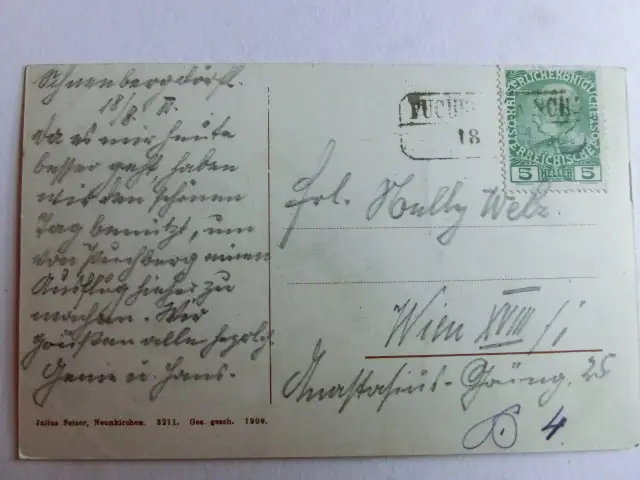 Schneebergdörfl.
18/8 11.
Da es mir heute
besser geht, haben
wir den schönen
Tag benützt, um
von Puchberg einen
Ausflug hieher zu
machen. Wir
grüßen alle herzlich
Genie u. Hans.
Julius Seiser, Neunkirchen. 3211. Ges. gesch. 1909.
PUCHB
18
KAISERLICHE KÖNIGLICHE
ÖSTERREICHISCHE
5 HELLER 5
Frl. Nelly Welz
Wien XVIII/1
Anastasius-Grüng. 25
4.